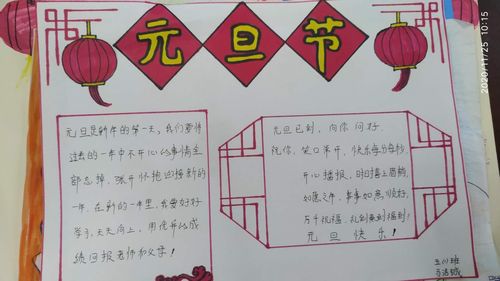 元旦节
元旦是新年的第一天，我们要将
过去的一年中不开心的事情全
部忘掉，张开怀抱迎接新的
一年，在新的一年里，我要好好
学习，天天向上，用优异的成
绩回报老师和父母！
元旦已到，向你问好，
祝你，笑口常开，快乐每分每秒，
开心播报，时时播上眉梢，
如愿之年，事事如意顺好，
万千祝福，礼到来到福到！
元旦快乐！
2020/11/25 10:15